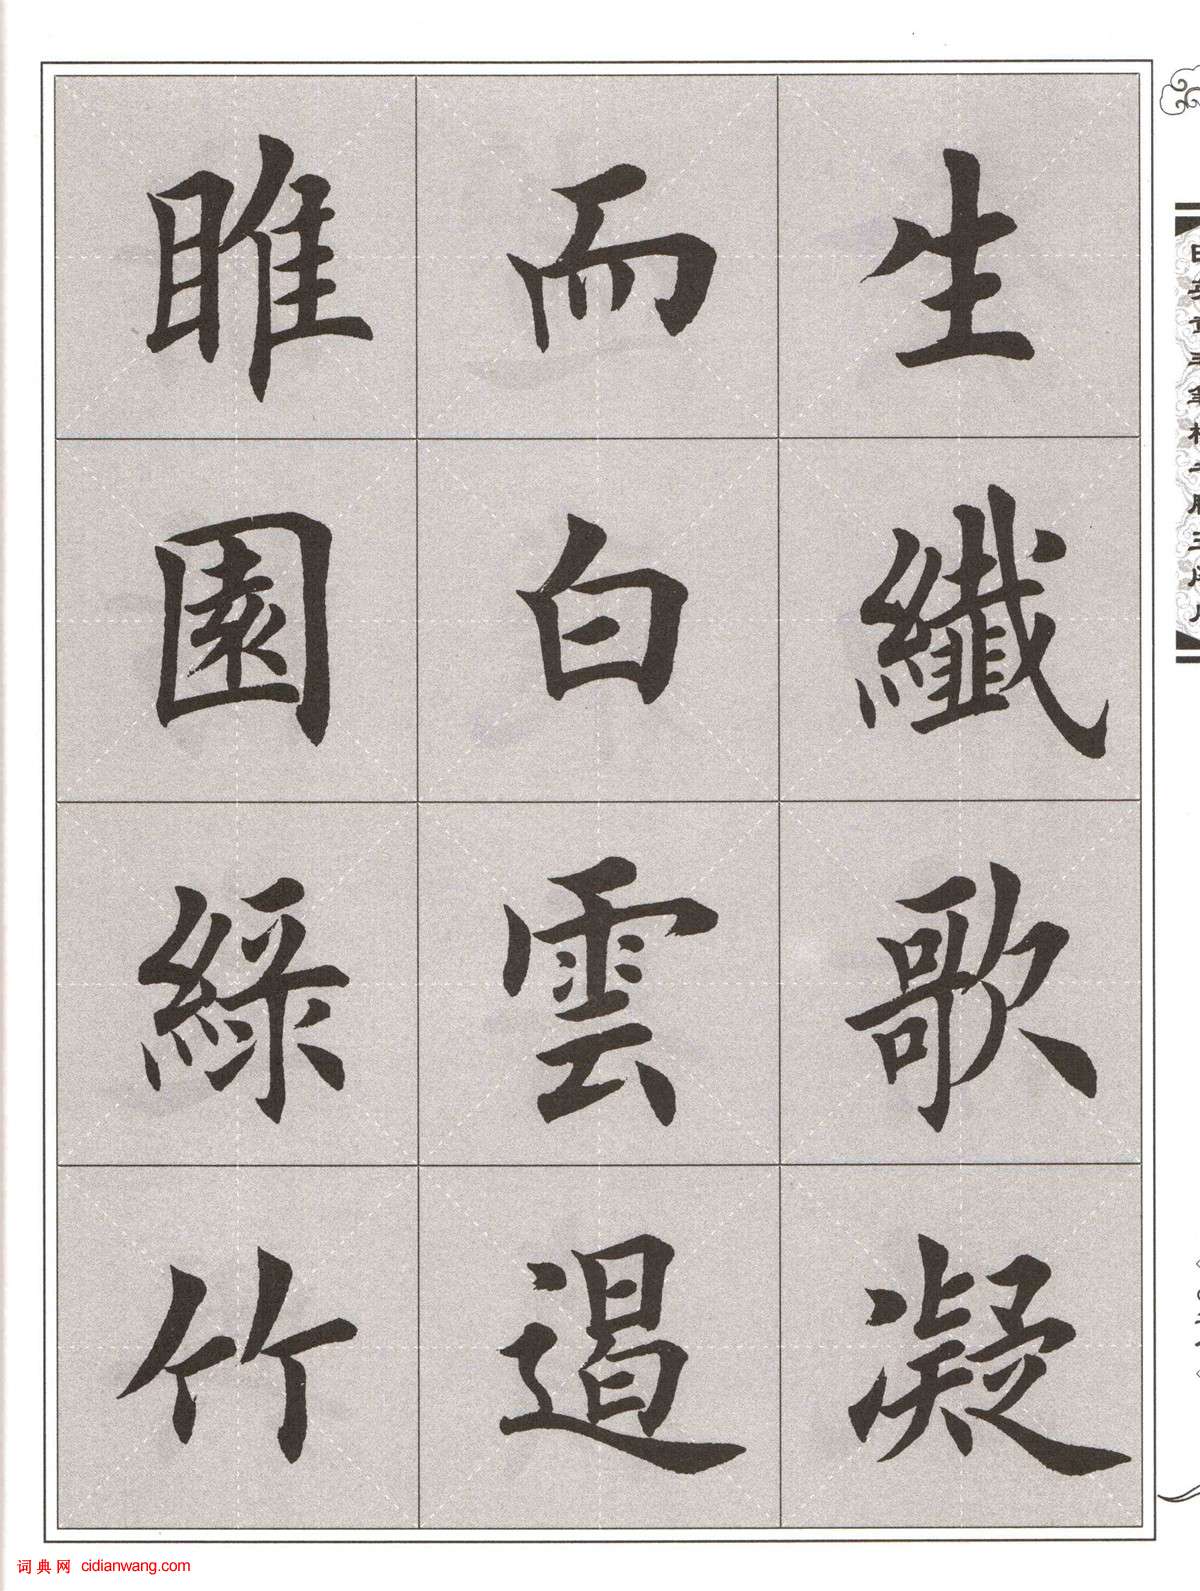 生纖歌凝
而白雲遏
睢園綠竹
词典网 cidianwang.com